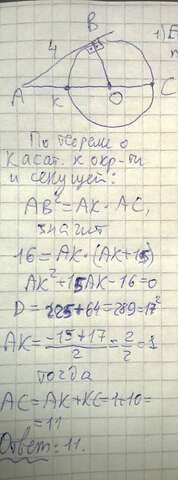 B
1) Е
4
A
к
O
C
По теореме о
касат. к окр-ти
и секущей:
AB² = AK · AC,
значит
16 = AK · (AK+15)
AK² + 15AK - 16 = 0
D = 225 + 64 = 289 = 17²
AK = -15+17/2 = 2/2 = 1
тогда
AC = AK + KC = 1 + 10 =
= 11
Ответ: 11.